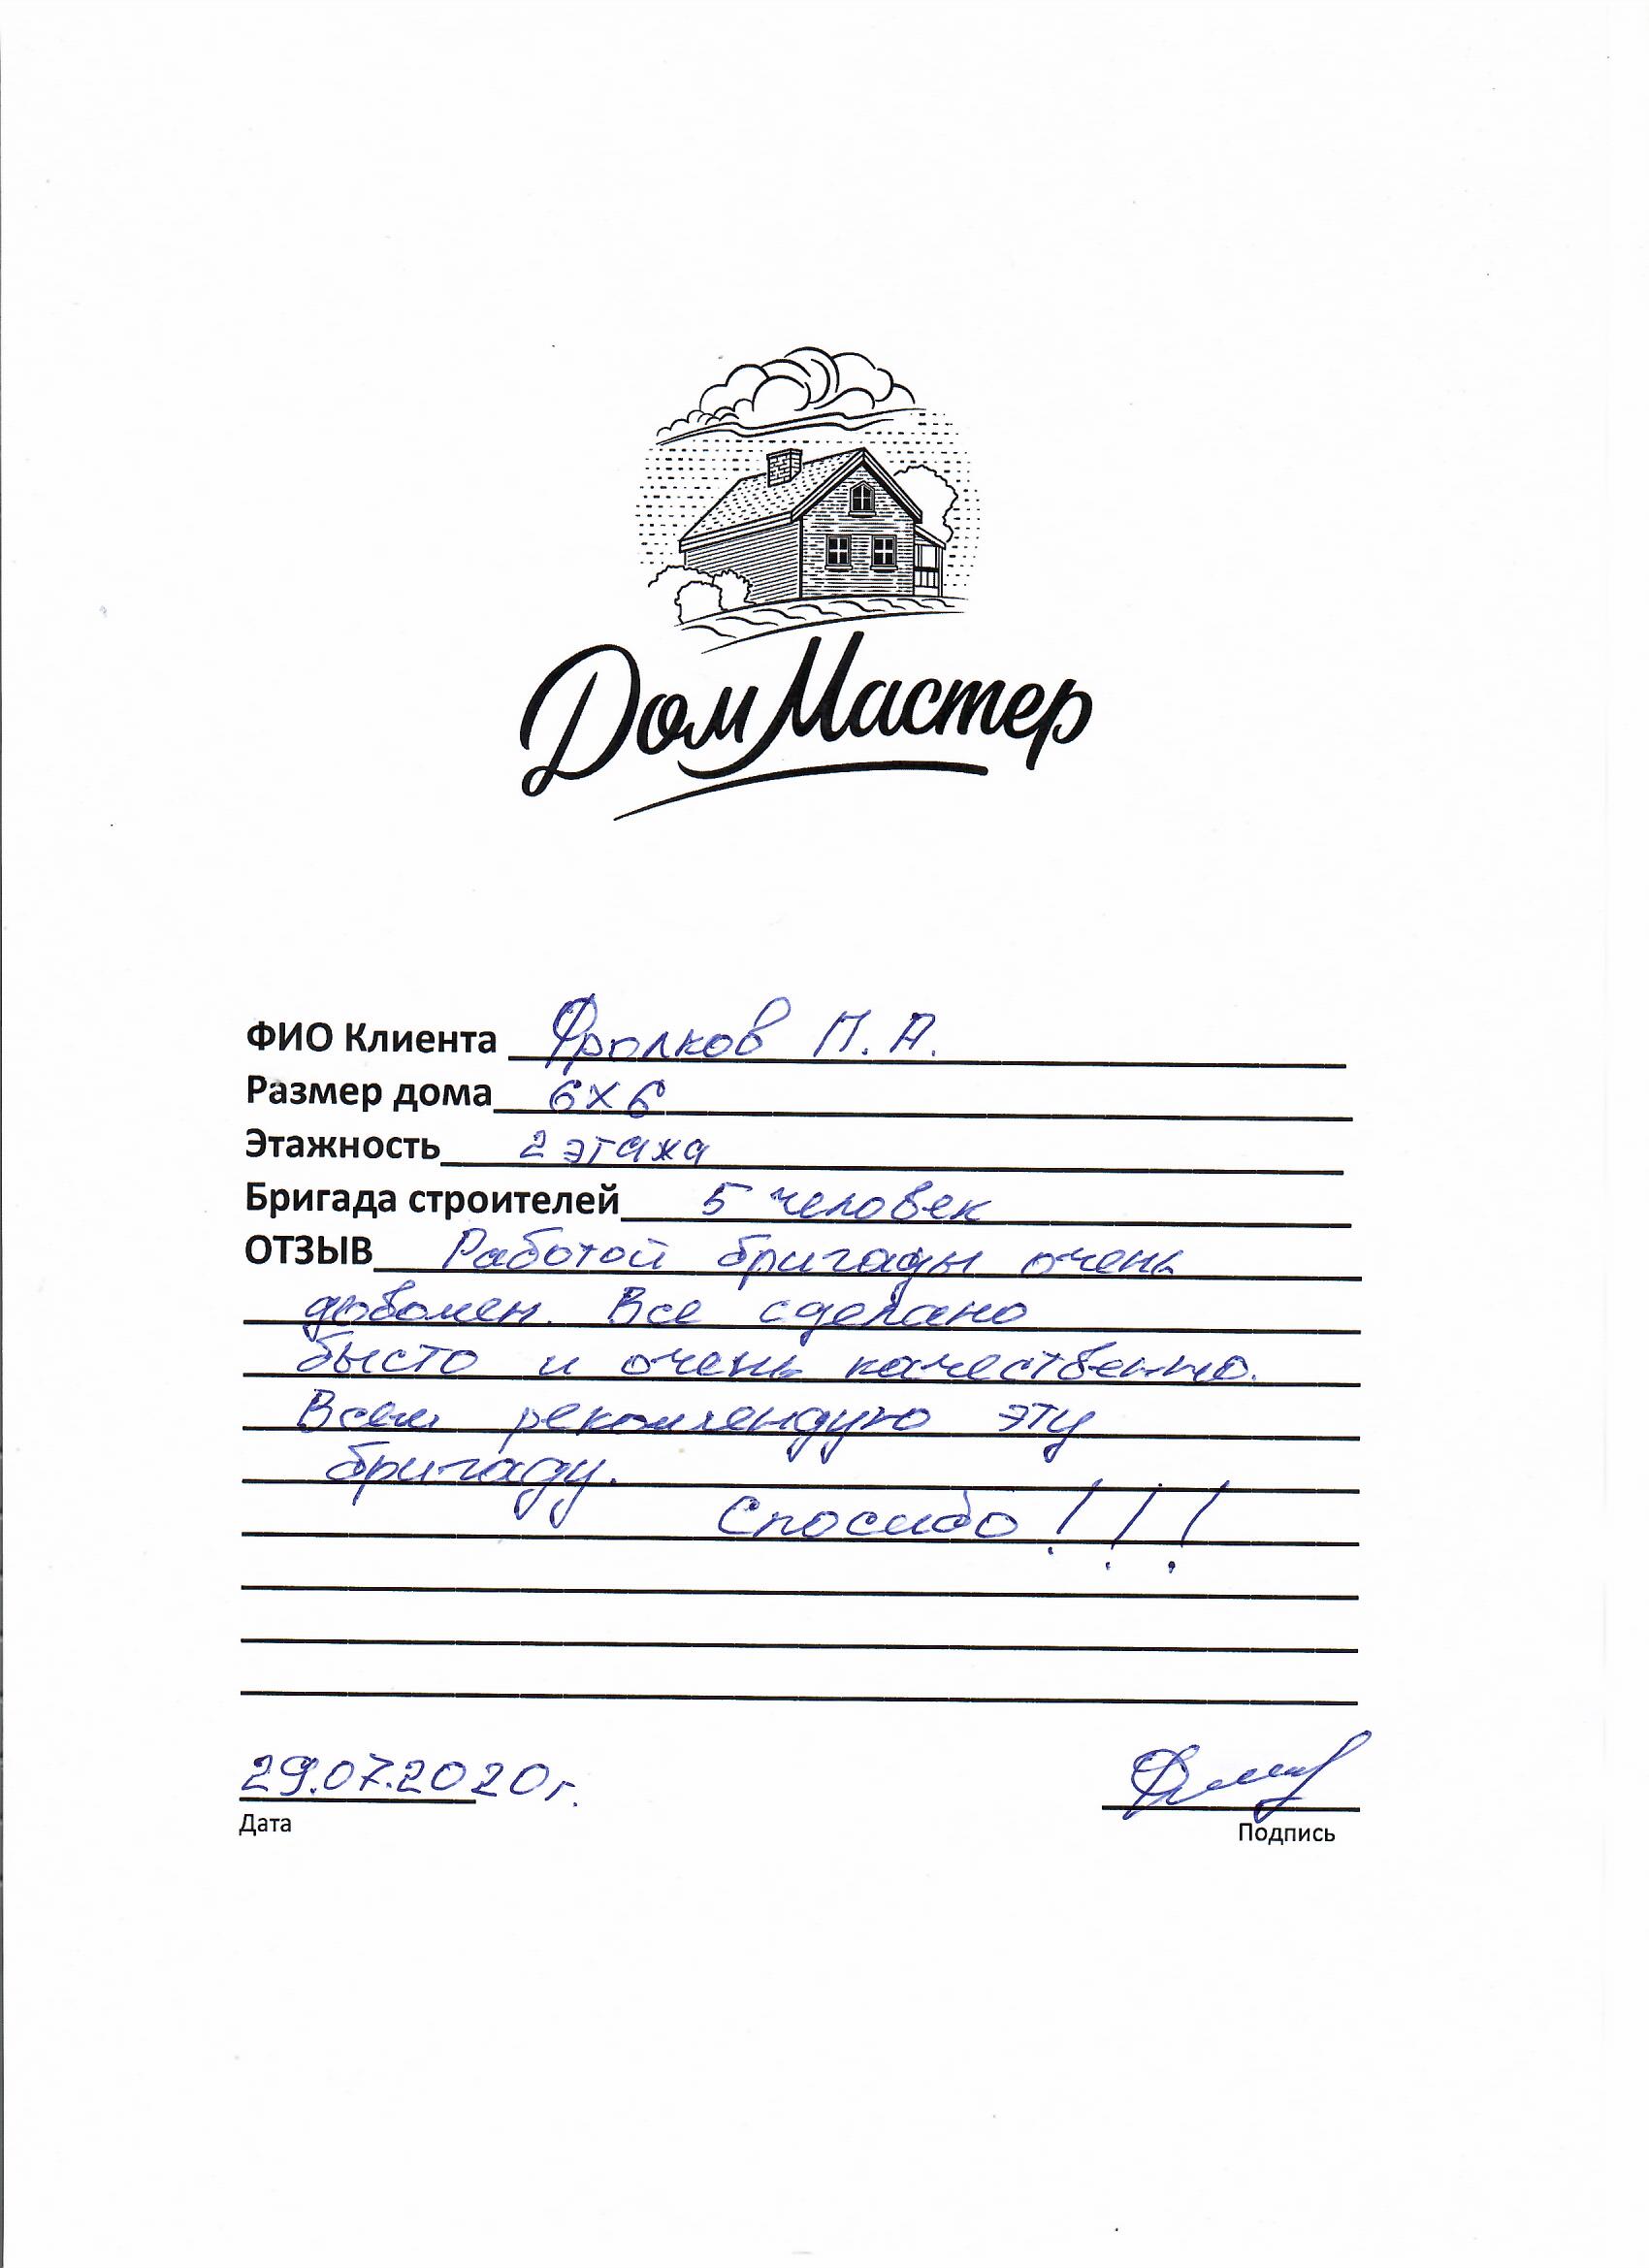 Дом Мастер
ФИО Клиента Фролков П. А.
Размер дома 6х6
Этажность 2 этажа
Бригада строителей 5 человек
ОТЗЫВ Работой бригады очень
доволен. Все сделано
бысто и очень качественно.
Всем рекомендую эту
бригаду.
Спосибо!!!
29.07.2020г.
Дата
Подпись